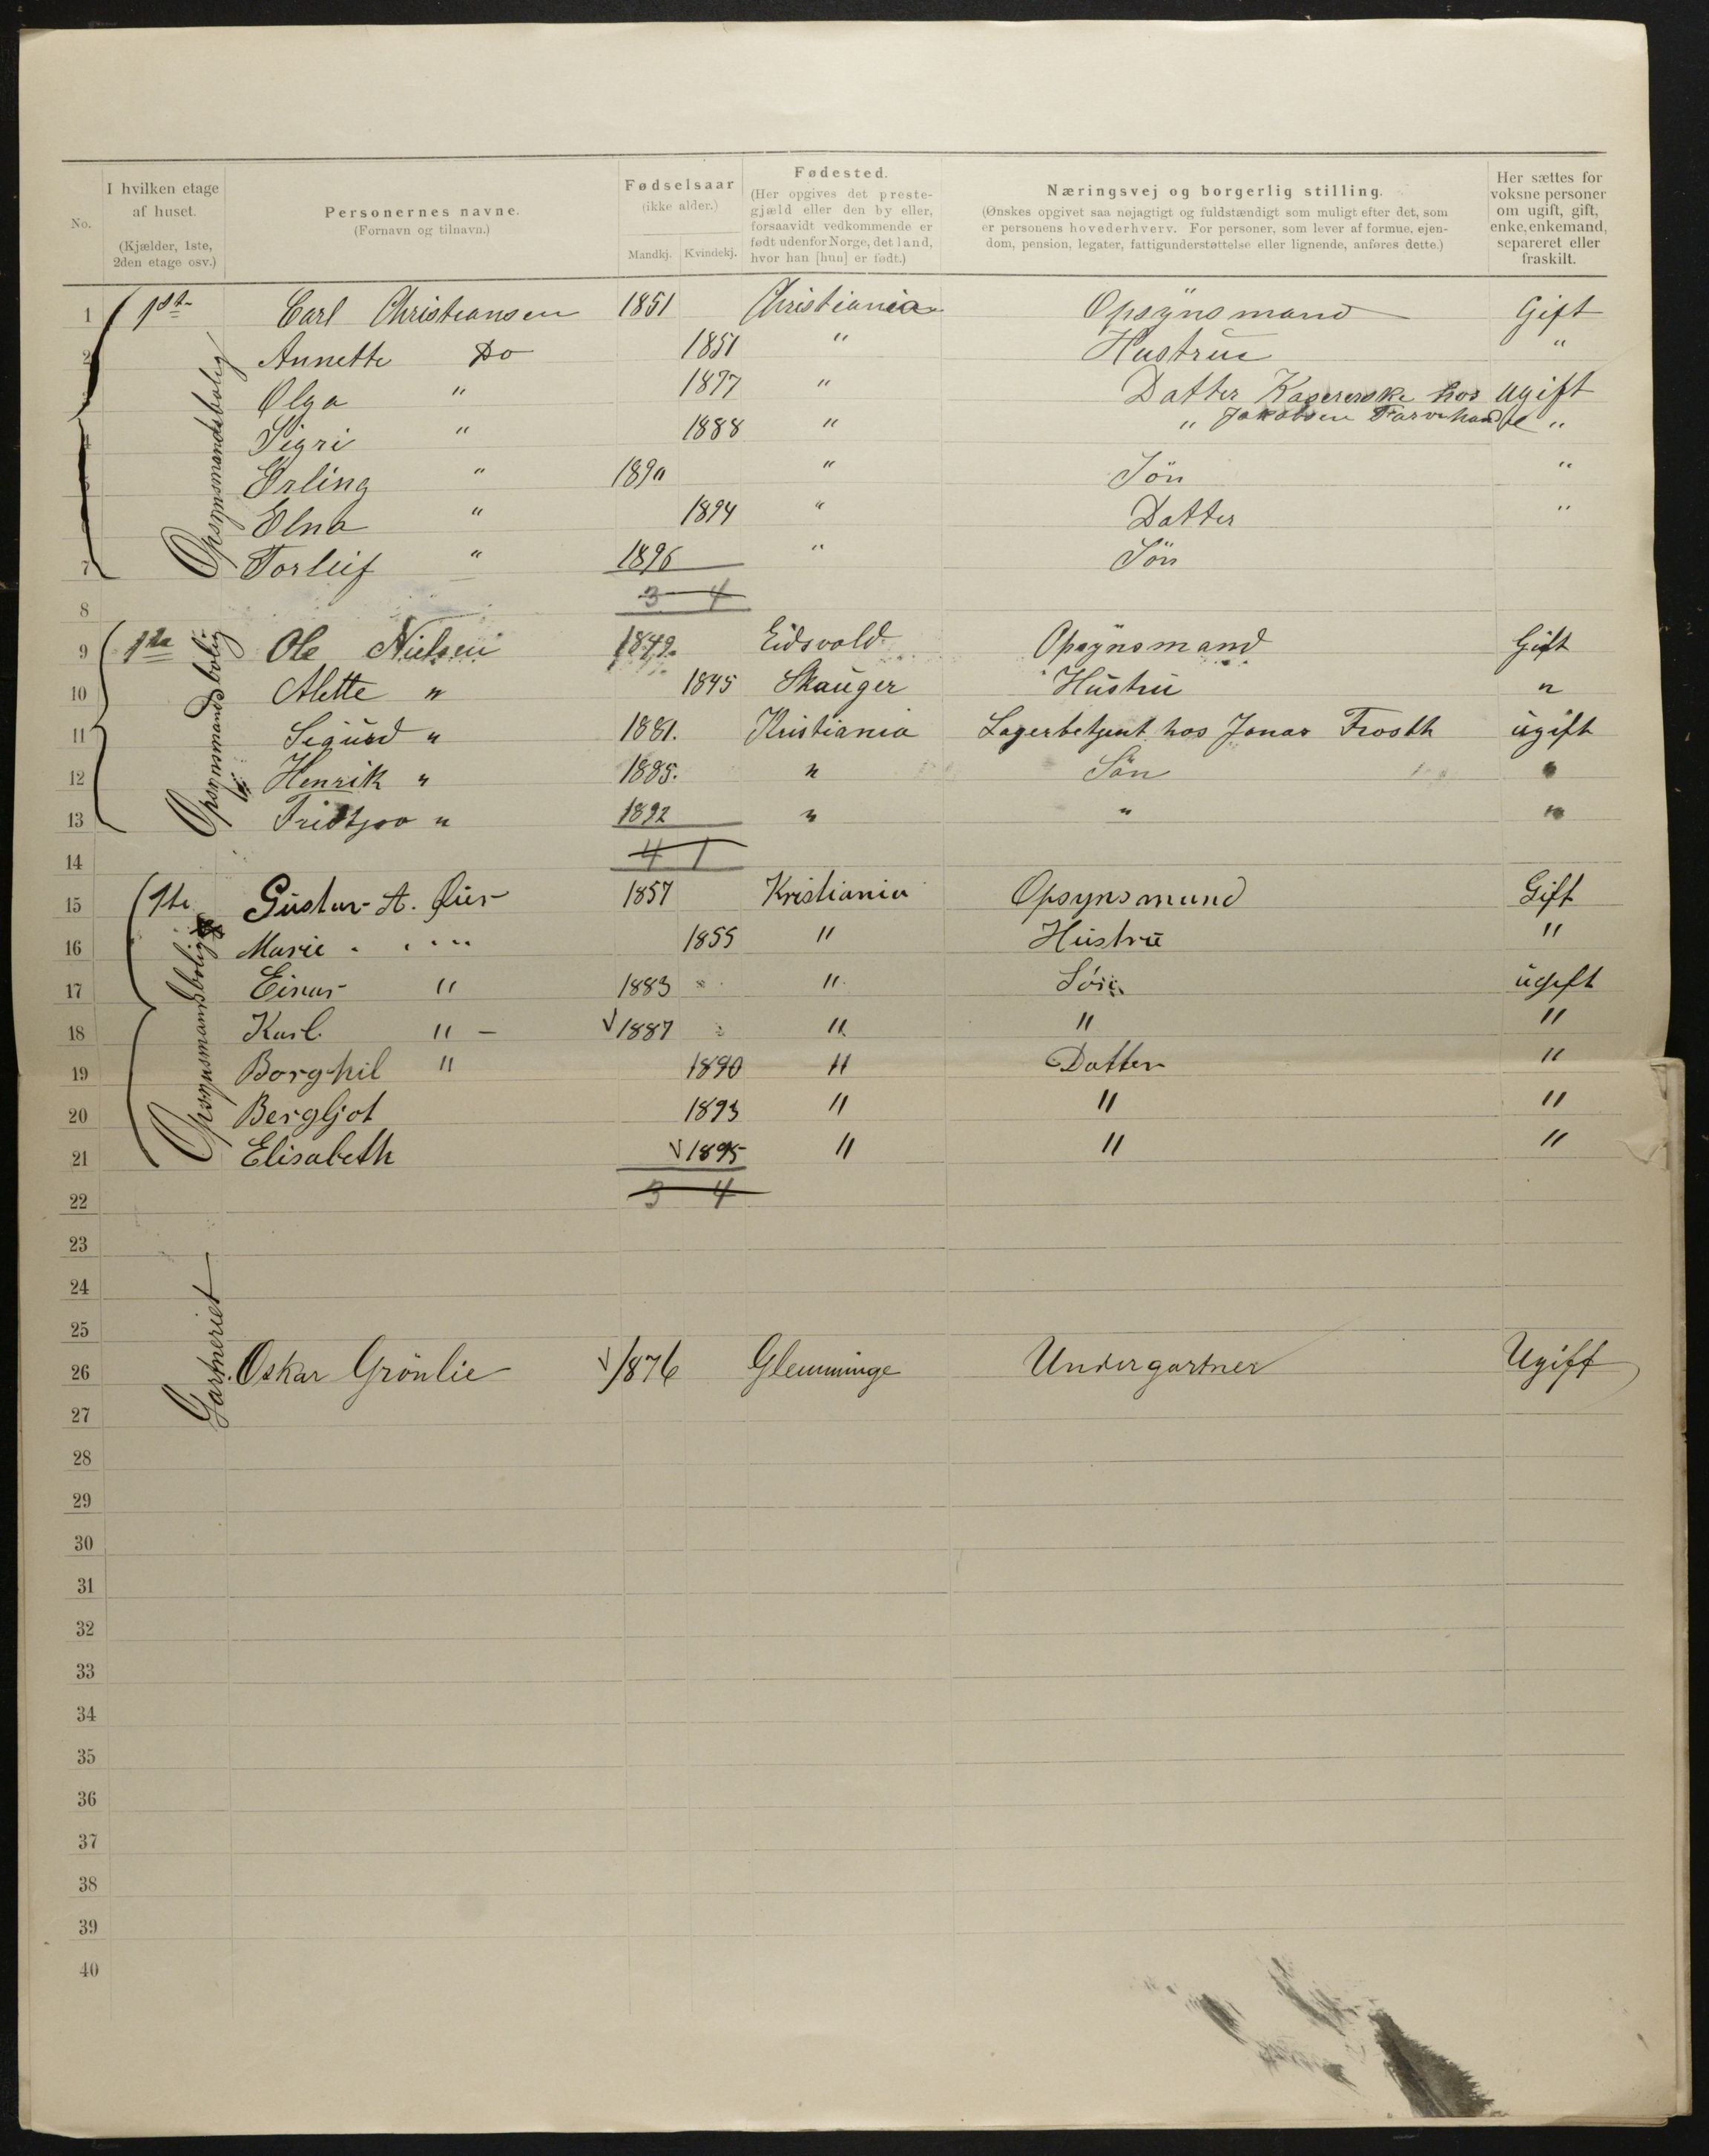 No.
I hvilken etage af huset. (Kjælder, 1ste, 2den etage osv.)
Personernes navne. (Fornavn og tilnavn.)
Fødselsaar (ikke alder.) Mandkj. Kvindekj.
Fødested. (Her opgives det prestegjæld eller den by eller, forsaavidt vedkommende er født udenfor Norge, det land, hvor han [hun] er født.)
Næringsvej og borgerlig stilling. (Ønskes opgivet saa nøjagtigt og fuldstændigt som muligt efter det, som er personens hovederhverv. For personer, som lever af formue, ejendom, pension, legater, fattigunderstøttelse eller lignende, anføres dette.)
Her sættes for voksne personer om ugift, gift, enke, enkemand, separeret eller fraskilt.
Opsynsmandsbolig
1 1ste Carl Christiansen 1851 Christiania Opsynsmand Gift
2 Annette Do 1851 " Hustru "
Olga " 1877 " Datter Kasererske hos ugift
4 Sigri " 1888 " " Jakobsen Farvehandel "
Erling " 1890 " Sön "
Elna " 1894 " Datter "
7 Torleif " 1896 " Sön
8 3 4
Opsynsmandsbolig
9 1ste Ole Nielsen 1849. Eidsvold Opsynsmand Gift
10 Alette " 1845 Skauger Hustru "
11 Sigurd " 1881. Kristiania Lagerbetjent hos Jonas Frosth ugift
12 Henrik " 1885. " Sön "
13 Fridtjov " 1892 " " "
14 4 1
Opsynsmandsbolig
15 1ste Gustav A. 1857 Kristiania Opsynsmand Gift
16 Marie " " 1855 " Hustru "
17 Einar " 1883 " Søn ugift
18 Karl " 1887 " " "
19 Borghil " 1890 " Datter "
20 Bergljot 1893 " " "
21 Elisabeth 1895 " " "
22 3 4
23
24
25
Gartneriet
26 Oskar Grönlie 1876 Glemminge Undergartner Ugift
27
28
29
30
31
32
33
34
35
36
37
38
39
40